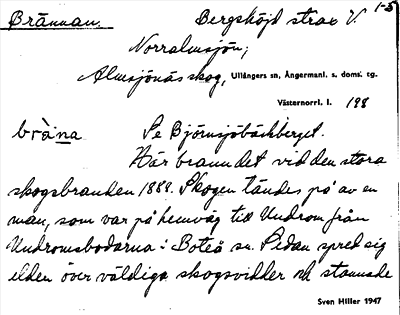 1-3
Brännan. Bergshöjd strax V.
Norralmsjön;
Almsjönäs skog, Ullångers sn, Ångermanl. s. doms. tg.
Västernorrl. l. 198
bràna Se Björnsjöbäckberget.
Här brann det vid den stora
skogsbranden 1888. Skogen tändes på av en
man, som var på hemväg till Undrom från
Undromsbodarna i Boteå sn. Sedan spred sig
elden över väldiga skogsvidder och stannade
Sven Hiller 1947